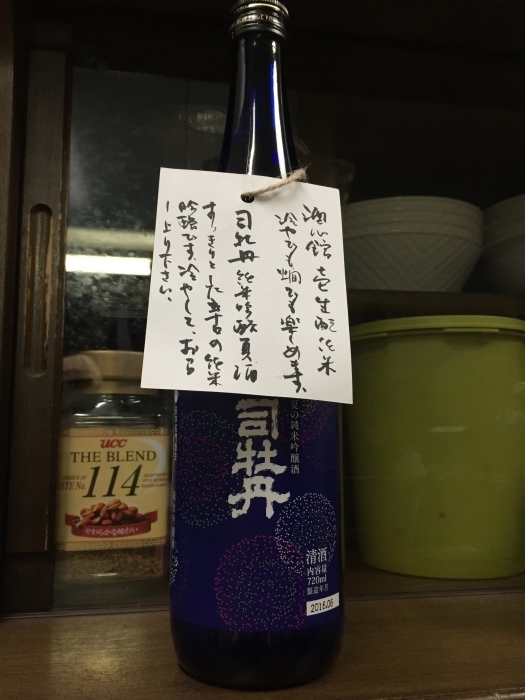 酒心館 壱 生酛純米
冷やでも燗でも楽しめます。
司牡丹 純米吟醸夏酒
すっきりとした辛口の純米
吟醸です。冷やして、お召
し上りください。
夏の純米吟醸酒
司牡丹
清酒
内容量
720ml
製造年月
2016.06
ucc
THE BLEND
TASTE No.
114
やわらかな味わい